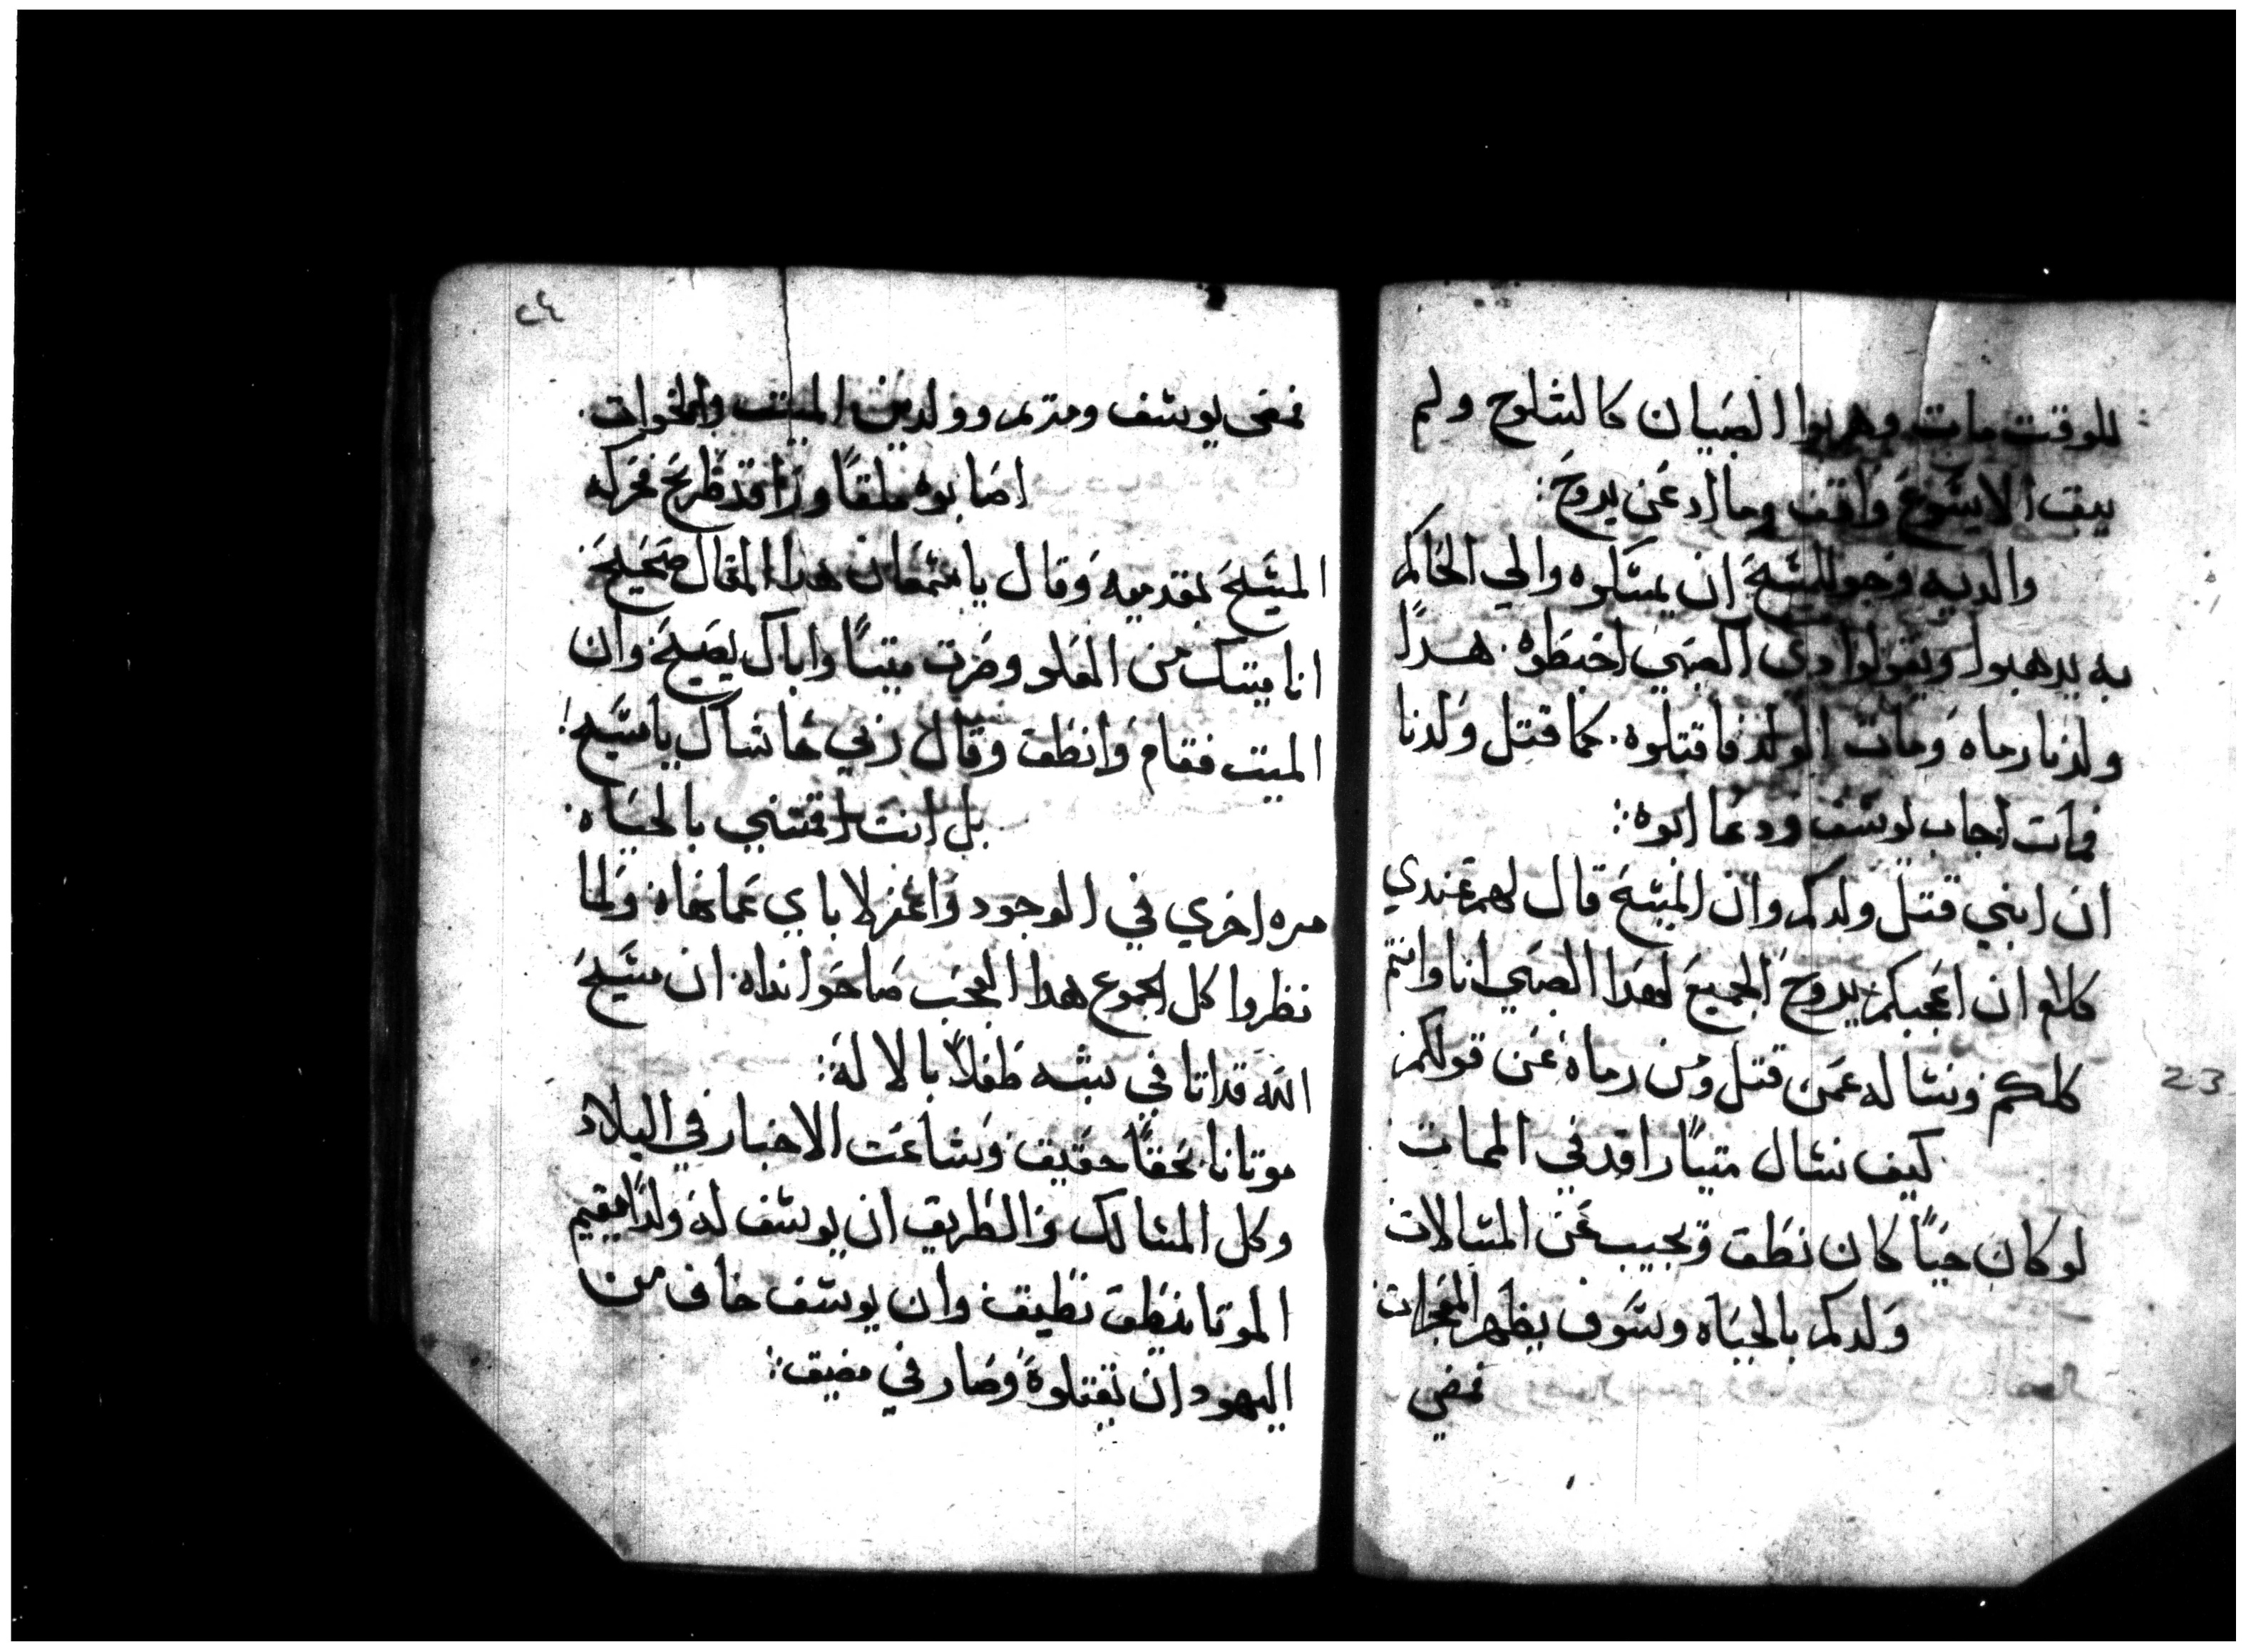 للوقت مات وهربوا الصبيان كالشلوح ولم
يبق الا يشوع واقف وما اراد عن يروح:
والديه وجوا للمشيح ان يمسكوه والي الحاكم
به يدهبوا ويقولوا دي الصبي احتطوه. هدا
ولدنا رماه ومات الولد فاقتلوه. كما قتل ولدنا
فمات اجاب يوسف ودعا ابوه:
ان ابني قتل ولدكم وان المشيح قال لهم عندي
كلام ان اعجبكم يروح الجميع لهدا الصبي انا وانتم
كلكم ونساله عمن قتل ومن رماه عن قولكم
كيف نسال ميتًا راقد في الممات
لو كان حيًا كان نطق ويجيب عن المسالات
ولدكم بالحياه وسوف يظهر المعجزات
فمضي
23
٢٤
فمضي يوسف ومريم ووالدين الميت والاخوات.
اصابوه ملقًا وراقد طريح فحركه
المشيح بقدميه وقال يا شمعان هدا المقال صحيح
انا ميتك من العلو وصرت ميتًا واباك يصيح وان
الميت فقام وانطق وقال ربي حاشاك يا مشيح!
بل انت اقمتني بالحياه.
مره اخري في الوجود واغفر لاباي عماخاه ولما
نظروا كل الجموع هدا العجب صاحوا نداه. ان مشيح
الله قد اتا في شبه طفلًا بالا له:
موتانا بحقًا حقيق وشاعت الاخبار في البلاد
وكل المسالك والطريق ان يوسف له ولدًا يقيم
الموتا ينطق نطيق وان يوسف خاف من
اليهود ان يقتلوه وصار في مضيق: